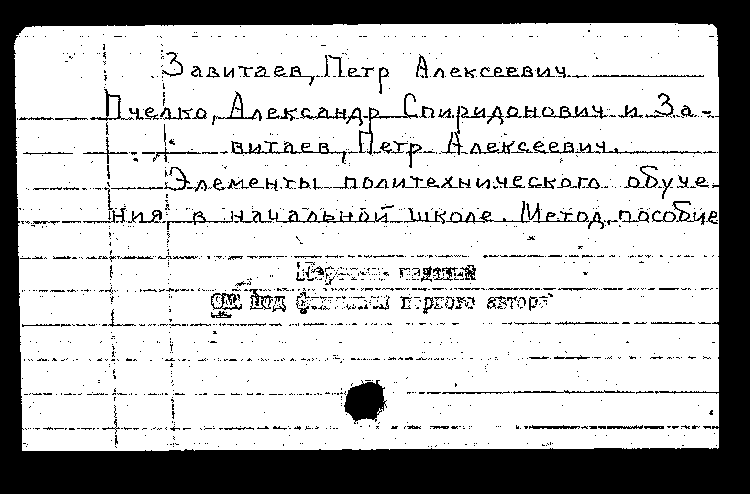 Завитаев, Петр Алексеевич
Пчелко, Александр Спиридонович и За-
витаев, Петр Алексеевич.
Элементы политехнического обуче-
ния в начальной школе. Метод. пособие
Перечень изданий
см. под фамилией первого автора